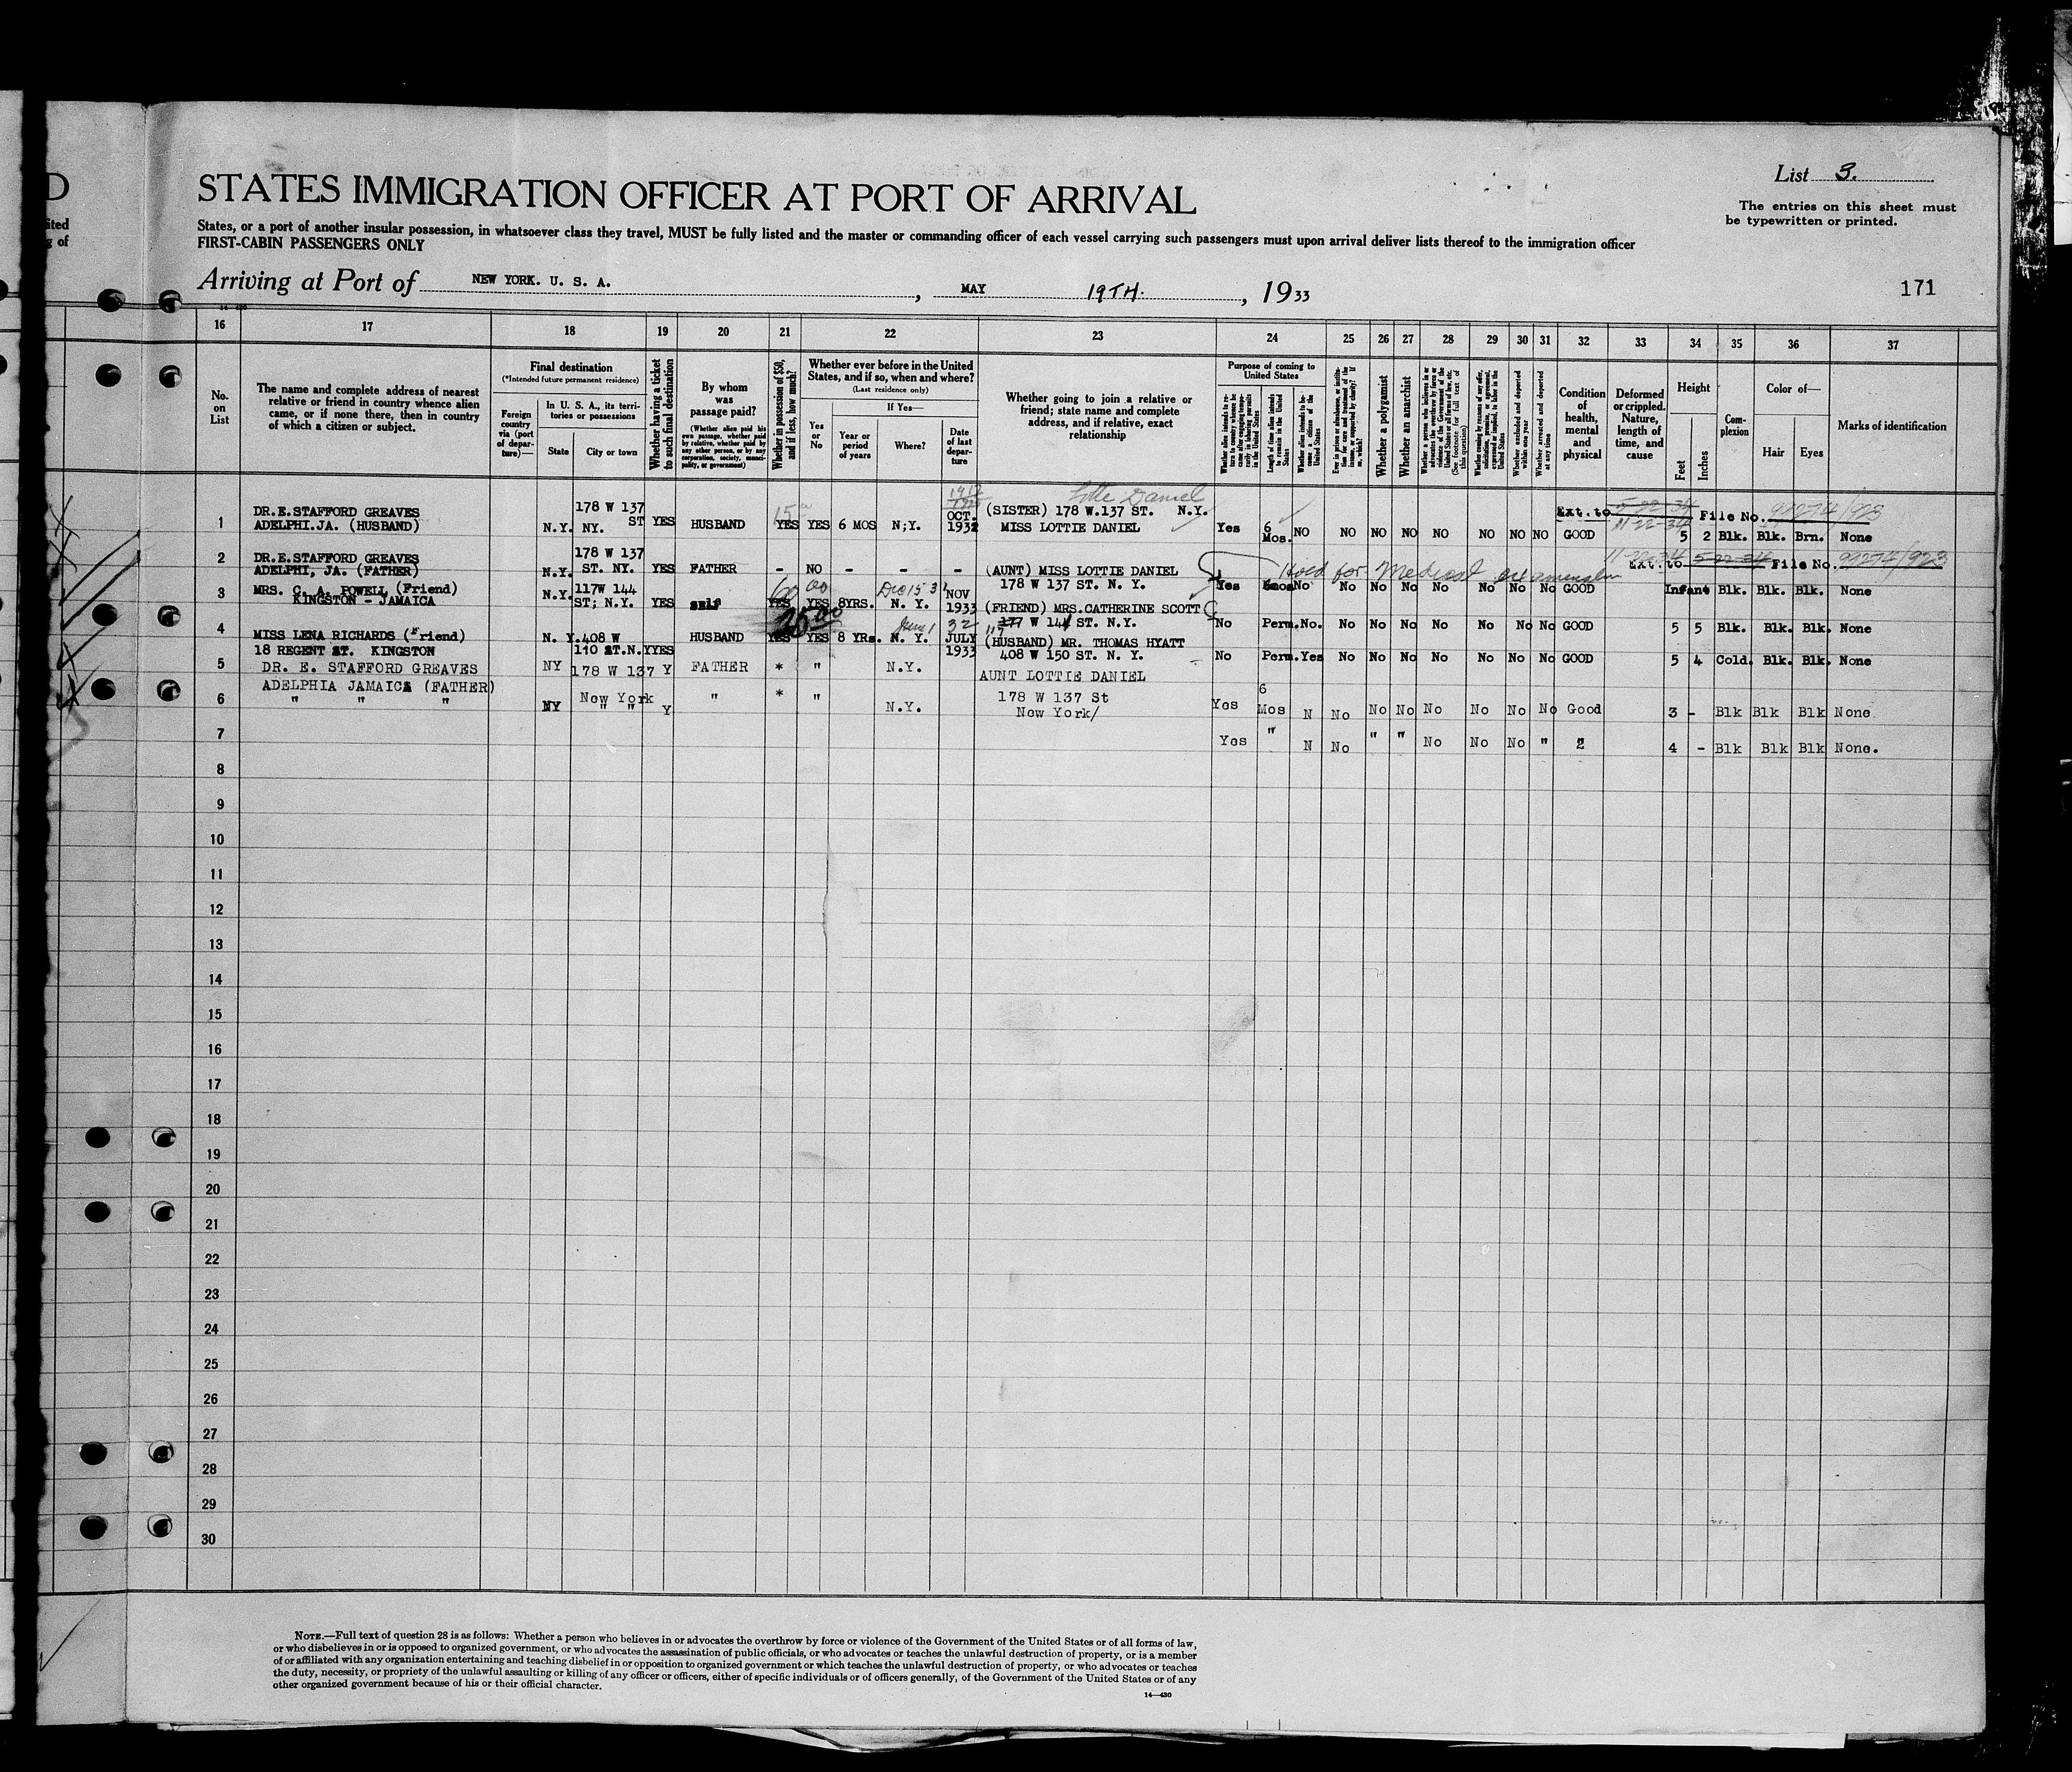 D
List 3.
STATES IMMIGRATION OFFICER AT PORT OF ARRIVAL
The entries on this sheet must
be typewritten or printed.
ited
g of
States, or a port of another insular possession, in whatsoever class they travel, MUST be fully listed and the master or commanding officer of each vessel carrying such passengers must upon arrival deliver lists thereof to the immigration officer
FIRST-CABIN PASSENGERS ONLY
Arriving at Port of NEW YORK. U. S. A. , MAY 19TH. , 1933
171
16 17 18 19 20 21 22 23 24 25 26 27 28 29 30 31 32 33 34 35 36 37
No. on List
The name and complete address of nearest relative or friend in country whence alien came, or if none there, then in country of which a citizen or subject.
Final destination
(*Intended future permanent residence)
Foreign country via (port of departure)—
In U. S. A., its territories or possessions
State
City or town
Whether having a ticket to such final destination
By whom was passage paid?
(Whether alien paid his own passage, whether paid by relative, whether paid by any other person, or by any corporation, society, municipality, or government)
Whether in possession of $50, and if less, how much?
Whether ever before in the United States, and if so, when and where?
(Last residence only)
If Yes—
Yes or No
Year or period of years
Where?
Date of last departure
Whether going to join a relative or friend; state name and complete address, and if relative, exact relationship
Purpose of coming to United States
Length of time alien intends to remain in the United States
Whether alien intends to become a citizen of the United States
Whether a polygamist
Whether an anarchist
(See footnote for full text of this question)
Whether excluded and deported within one year
Whether arrested and deported at any time
Condition of health, mental and physical
Deformed or crippled. Nature, length of time, and cause
Height
Feet
Inches
Complexion
Color of—
Hair
Eyes
Marks of identification
1 DR.E.STAFFORD GREAVES
ADELPHI.JA. (HUSBAND) N.Y. 178 W 137 ST NY. YES HUSBAND YES YES 6 MOS N;Y. OCT. 1932 (SISTER) 178 W.137 ST. N.Y.
MISS LOTTIE DANIEL Yes 6 Mos. NO NO NO NO NO NO NO NO GOOD 5 2 Blk. Blk. Brn. None
Lotte Daniel
Ext. to 5-22-34 11-22-34 File No. 99274/923
2 DR.E.STAFFORD GREAVES
ADELPHI, JA. (FATHER) N.Y. 178 W 137 ST. NY. YES FATHER - NO - - - (AUNT) MISS LOTTIE DANIEL
178 W 137 ST. N. Y. Yes 6mos No No No No No No No No GOOD Infant Blk. Blk. Blk. None
Hold for Medical examination
11-22-34 Ext. to 5-22-34 File No. 99274/923
3 MRS. C. A. POWELL (Friend)
KINGSTON - JAMAICA N.Y. 117W 144 ST; N.Y. YES self YES YES 8YRS. N. Y. NOV 1933 (FRIEND) MRS.CATHERINE SCOTT
W 144 ST. N.Y. No Perm. No. No No No No No No No GOOD 5 5 Blk. Blk. Blk. None
60 00 Dec 15 31
4 MISS LENA RICHARDS (Friend)
18 REGENT ST. KINGSTON N. Y. 408 W 110 ST.N.Y YES HUSBAND YES YES 8 YRs. N. Y. JULY 1933 (HUSBAND) MR. THOMAS HYATT
408 W 150 ST. N. Y. No Perm. Yes No No No No No No No GOOD 5 4 Cold. Blk. Blk. None
35 00 June 1 32 117
5 DR. E. STAFFORD GREAVES
ADELPHIA JAMAICA (FATHER) NY 178 W 137 New York Y FATHER * " N.Y. AUNT LOTTIE DANIEL
178 W 137 St
New York/ Yes 6 Mos N No No No No No No No Good 3 - Blk Blk Blk None
6 " " " NY " " Y " * " N.Y. Yes " N No " " No No No " " 4 - Blk Blk Blk None.
7
8
9
10
11
12
13
14
15
16
17
18
19
20
21
22
23
24
25
26
27
28
29
30
NOTE.—Full text of question 28 is as follows: Whether a person who believes in or advocates the overthrow by force or violence of the Government of the United States or of all forms of law,
or who disbelieves in or is opposed to organized government, or who advocates the assassination of public officials, or who advocates or teaches the unlawful destruction of property, or is a member
of or affiliated with any organization entertaining and teaching disbelief in or opposition to organized government or which teaches the unlawful destruction of property, or who advocates or teaches
the duty, necessity, or propriety of the unlawful assaulting or killing of any officer or officers, either of specific individuals or of officers generally, of the Government of the United States or of any
other organized government because of his or their official character.
14—430